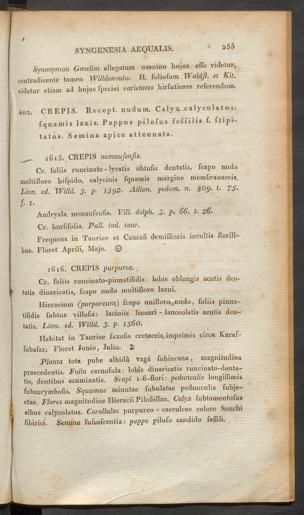 SYNGENESIA AEQUALIS. 255
Synonymon Gmelini allegatum omnino hujus esse videtur,
contradicente tamen Willdenowio. H. foliosum Waldst. et Kit.
videtur etiam ad hujus speciei varietates hirsutiores referendum.
402. CREPIS. Recept. nudum. Calyx calyculatus:
squamis laxis. Pappus pilosus sessilis s. stipi-
tatus. Semina apice attenuata.
1615. CREPIS nemausensis.
Cr. foliis runcinato-lyratis obtusis dentatis, scapo nudo
multifloro hispido, calycinis squamis margine membranaceis.
Linn. ed. Willd. 3. p. 1592. Allion. pedem. n. 809. t. 75.
f. 1.
Andryala nemausensis. Vill. delph. 3. p. 66. t. 26.
Cr. bursifolia. Pall. ind. taur.
Frequens in Tauriae et Caucasi demissioris incultis sterili-
bus. Floret Aprili, Majo. ☉
1616. CREPIS purpurea.
Cr. foliis runcinato-pinnatifidis: lobis oblongis acutis den-
tatis divaricatis, scapo nudo multifloro laevi.
Hieracium (purpureum) scapo unifloro nudo, foliis pinna-
tifidis subtus villosis: laciniis lineari-lanceolatis acutis den-
tatis. Linn. ed. Willd. 3. p. 1560.
Habitat in Tauriae saxosis cretaceis, imprimis circa Karas-
subasar. Floret Junio, Julio. ♃
Planta tota pube albida vaga subincana, magnitudine
praecedentis. Folia carnosula: lobis divaricatis runcinato-denta-
tis, dentibus acuminatis. Scapi 1.6-flori: pedunculis longissimis
subcorymbosis. Squamae minutae subulatae pedunculis subje-
ctae. Flores magnitudine Hieracii Pilosellae. Calyx subtomentosus
albus calyculatus. Corollulae purpureo-caeruleae colore Sonchi
sibirici. Semina fuscescentia: pappo piloso candido sessili.